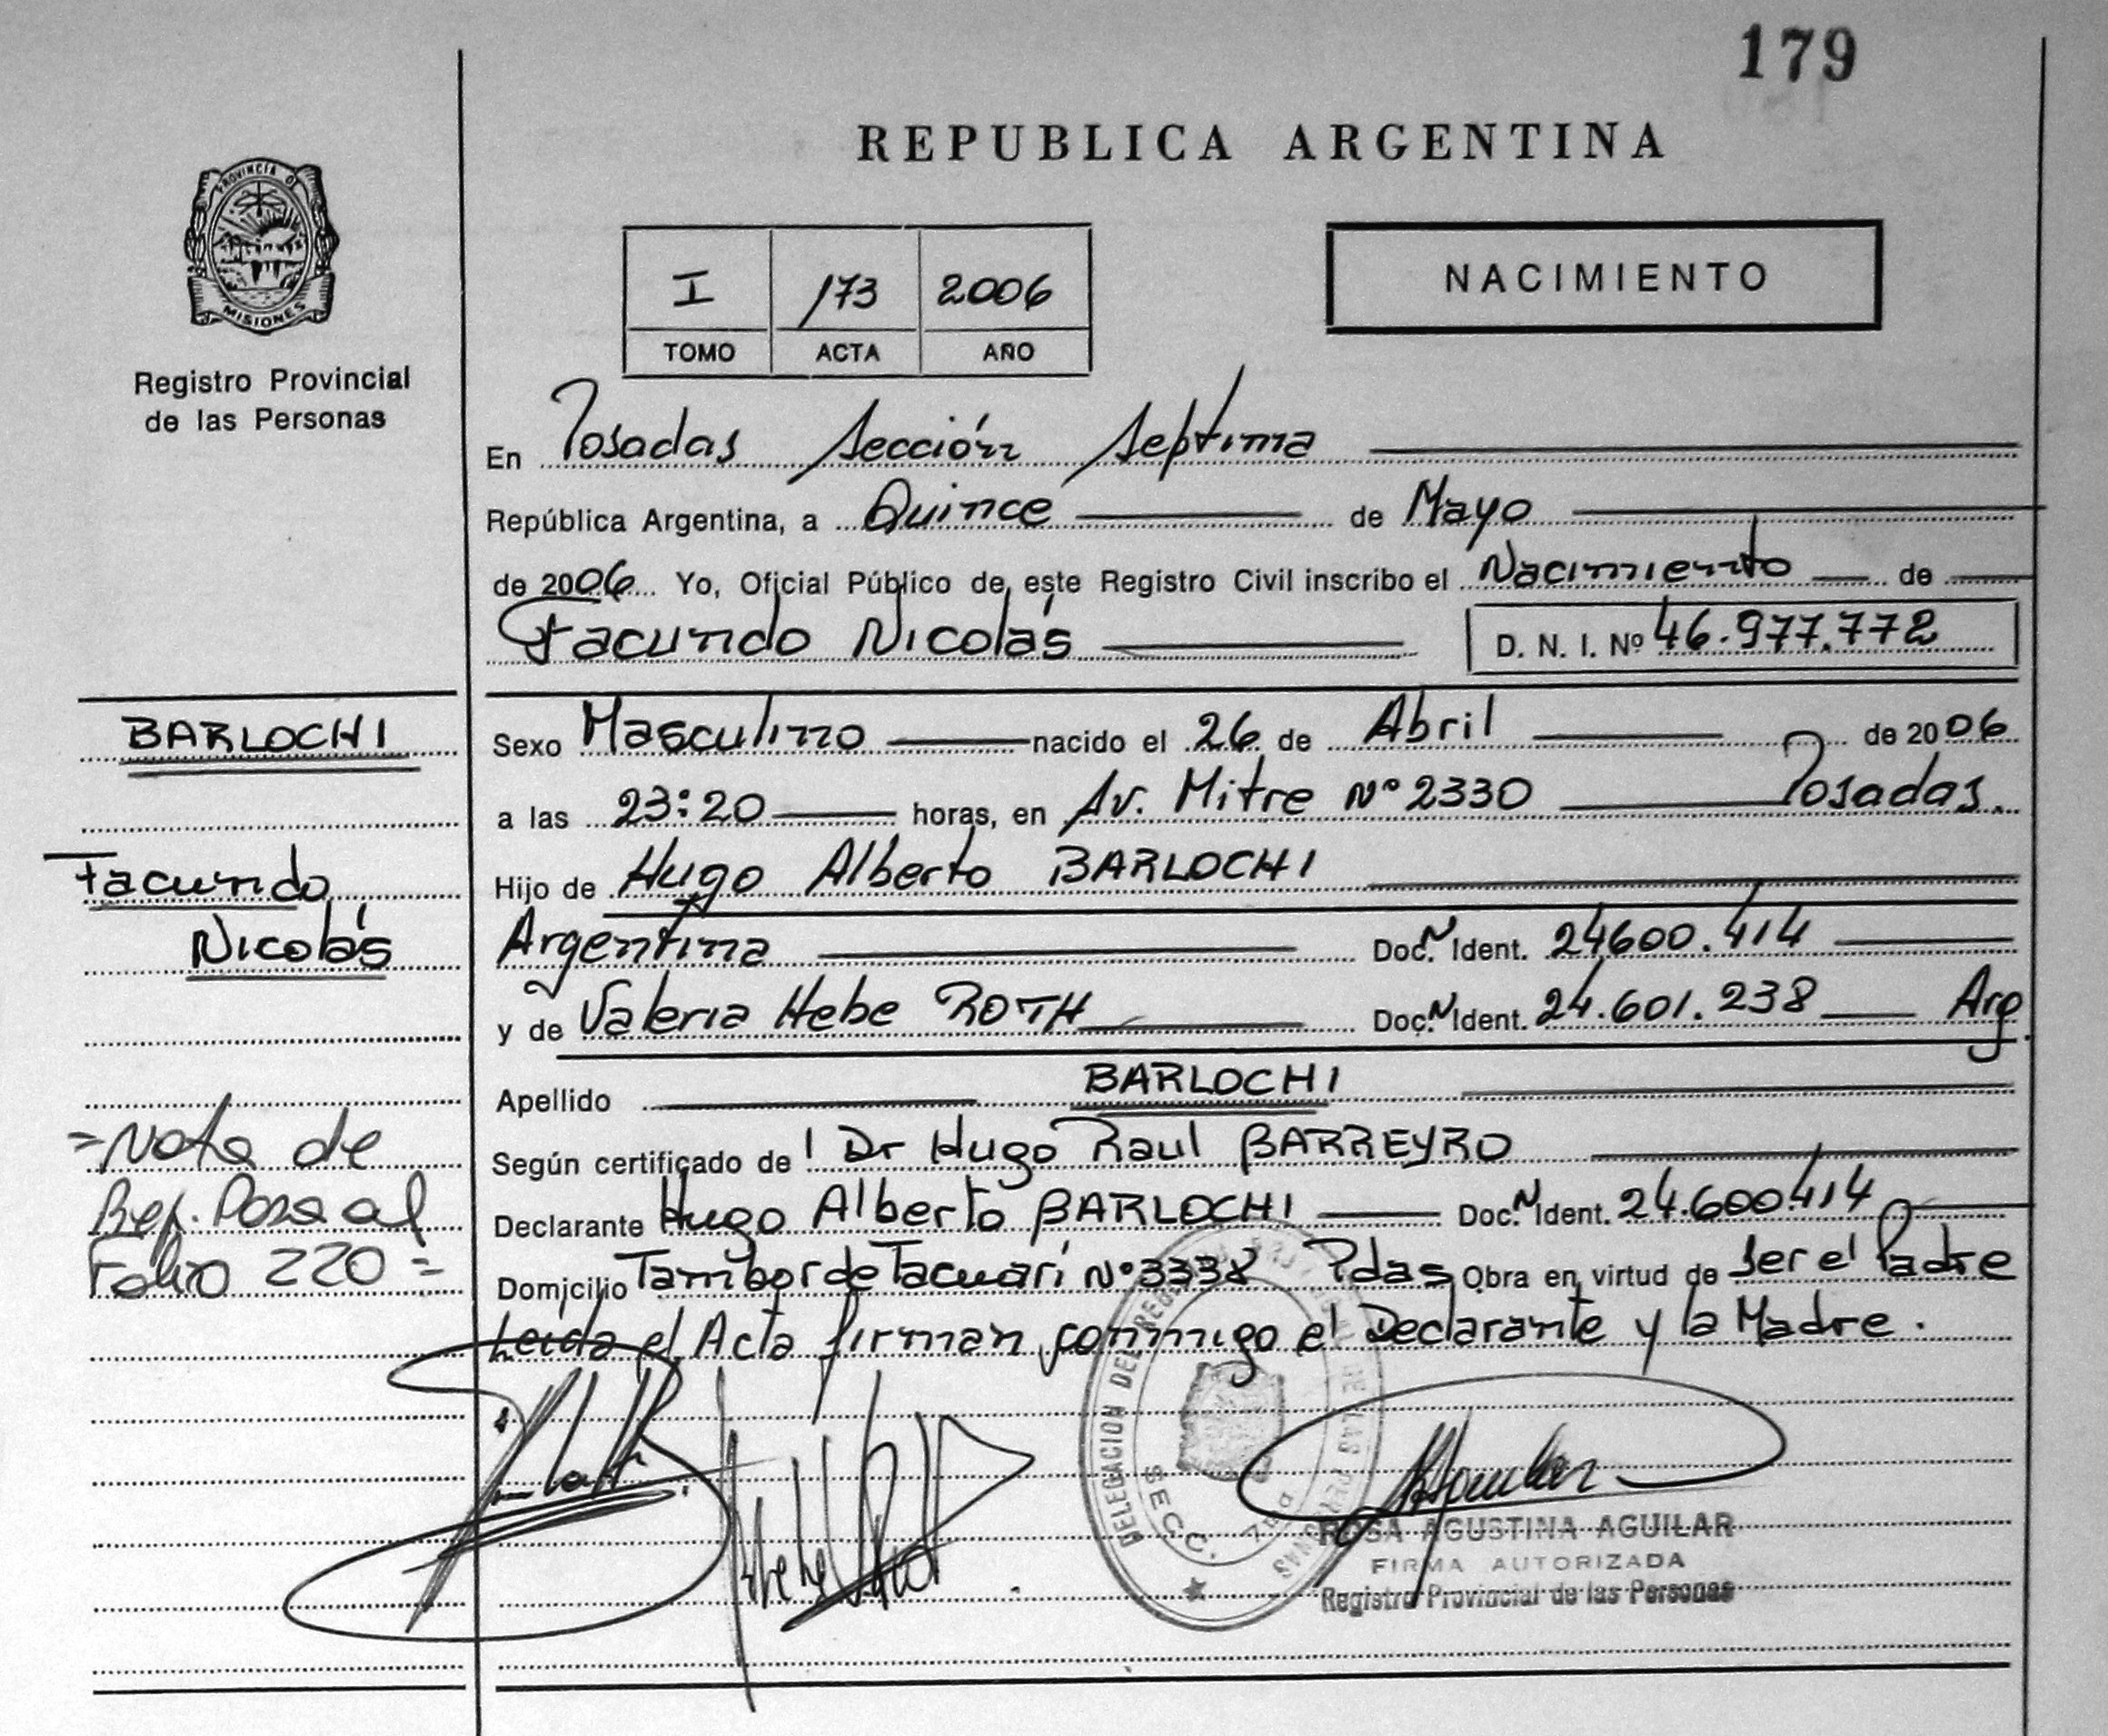 179
REPUBLICA ARGENTINA
PROVINCIA DE
MISIONES
Registro Provincial
de las Personas
I 173 2006
TOMO ACTA AÑO
NACIMIENTO
En Posadas Sección Septima
República Argentina, a Quince de Mayo
de 2006 Yo, Oficial Público de este Registro Civil inscribo el Nacimiento de
Facundo Nicolás D. N. I. Nº 46.977.772
BARLOCHI
Facundo
Nicolás
Sexo Masculino nacido el 26 de Abril de 2006
a las 23:20 horas, en Av. Mitre Nº 2330 Posadas.
Hijo de Hugo Alberto BARLOCHI
Argentina Doc. N Ident. 24600.414
y de Valeria Hebe ROTH Doc. N Ident. 24.601.238 Arg.
Apellido BARLOCHI
Según certificado de l Dr Hugo Raul BARREYRO
Declarante Hugo Alberto BARLOCHI Doc. N Ident. 24.600.414
Domicilio Tambor de Tacuarí Nº 3338 Pdas Obra en virtud de ser el Padre
Leída el Acta firman conmigo el Declarante y la Madre.
=Nota de
Ref. Pasa al
Folio 220=
DELEGACION DEL REGISTRO PROVINCIAL DE LAS PERSONAS
SECC. 7a
ROSA AGUSTINA AGUILAR
FIRMA AUTORIZADA
Registro Provincial de las Personas